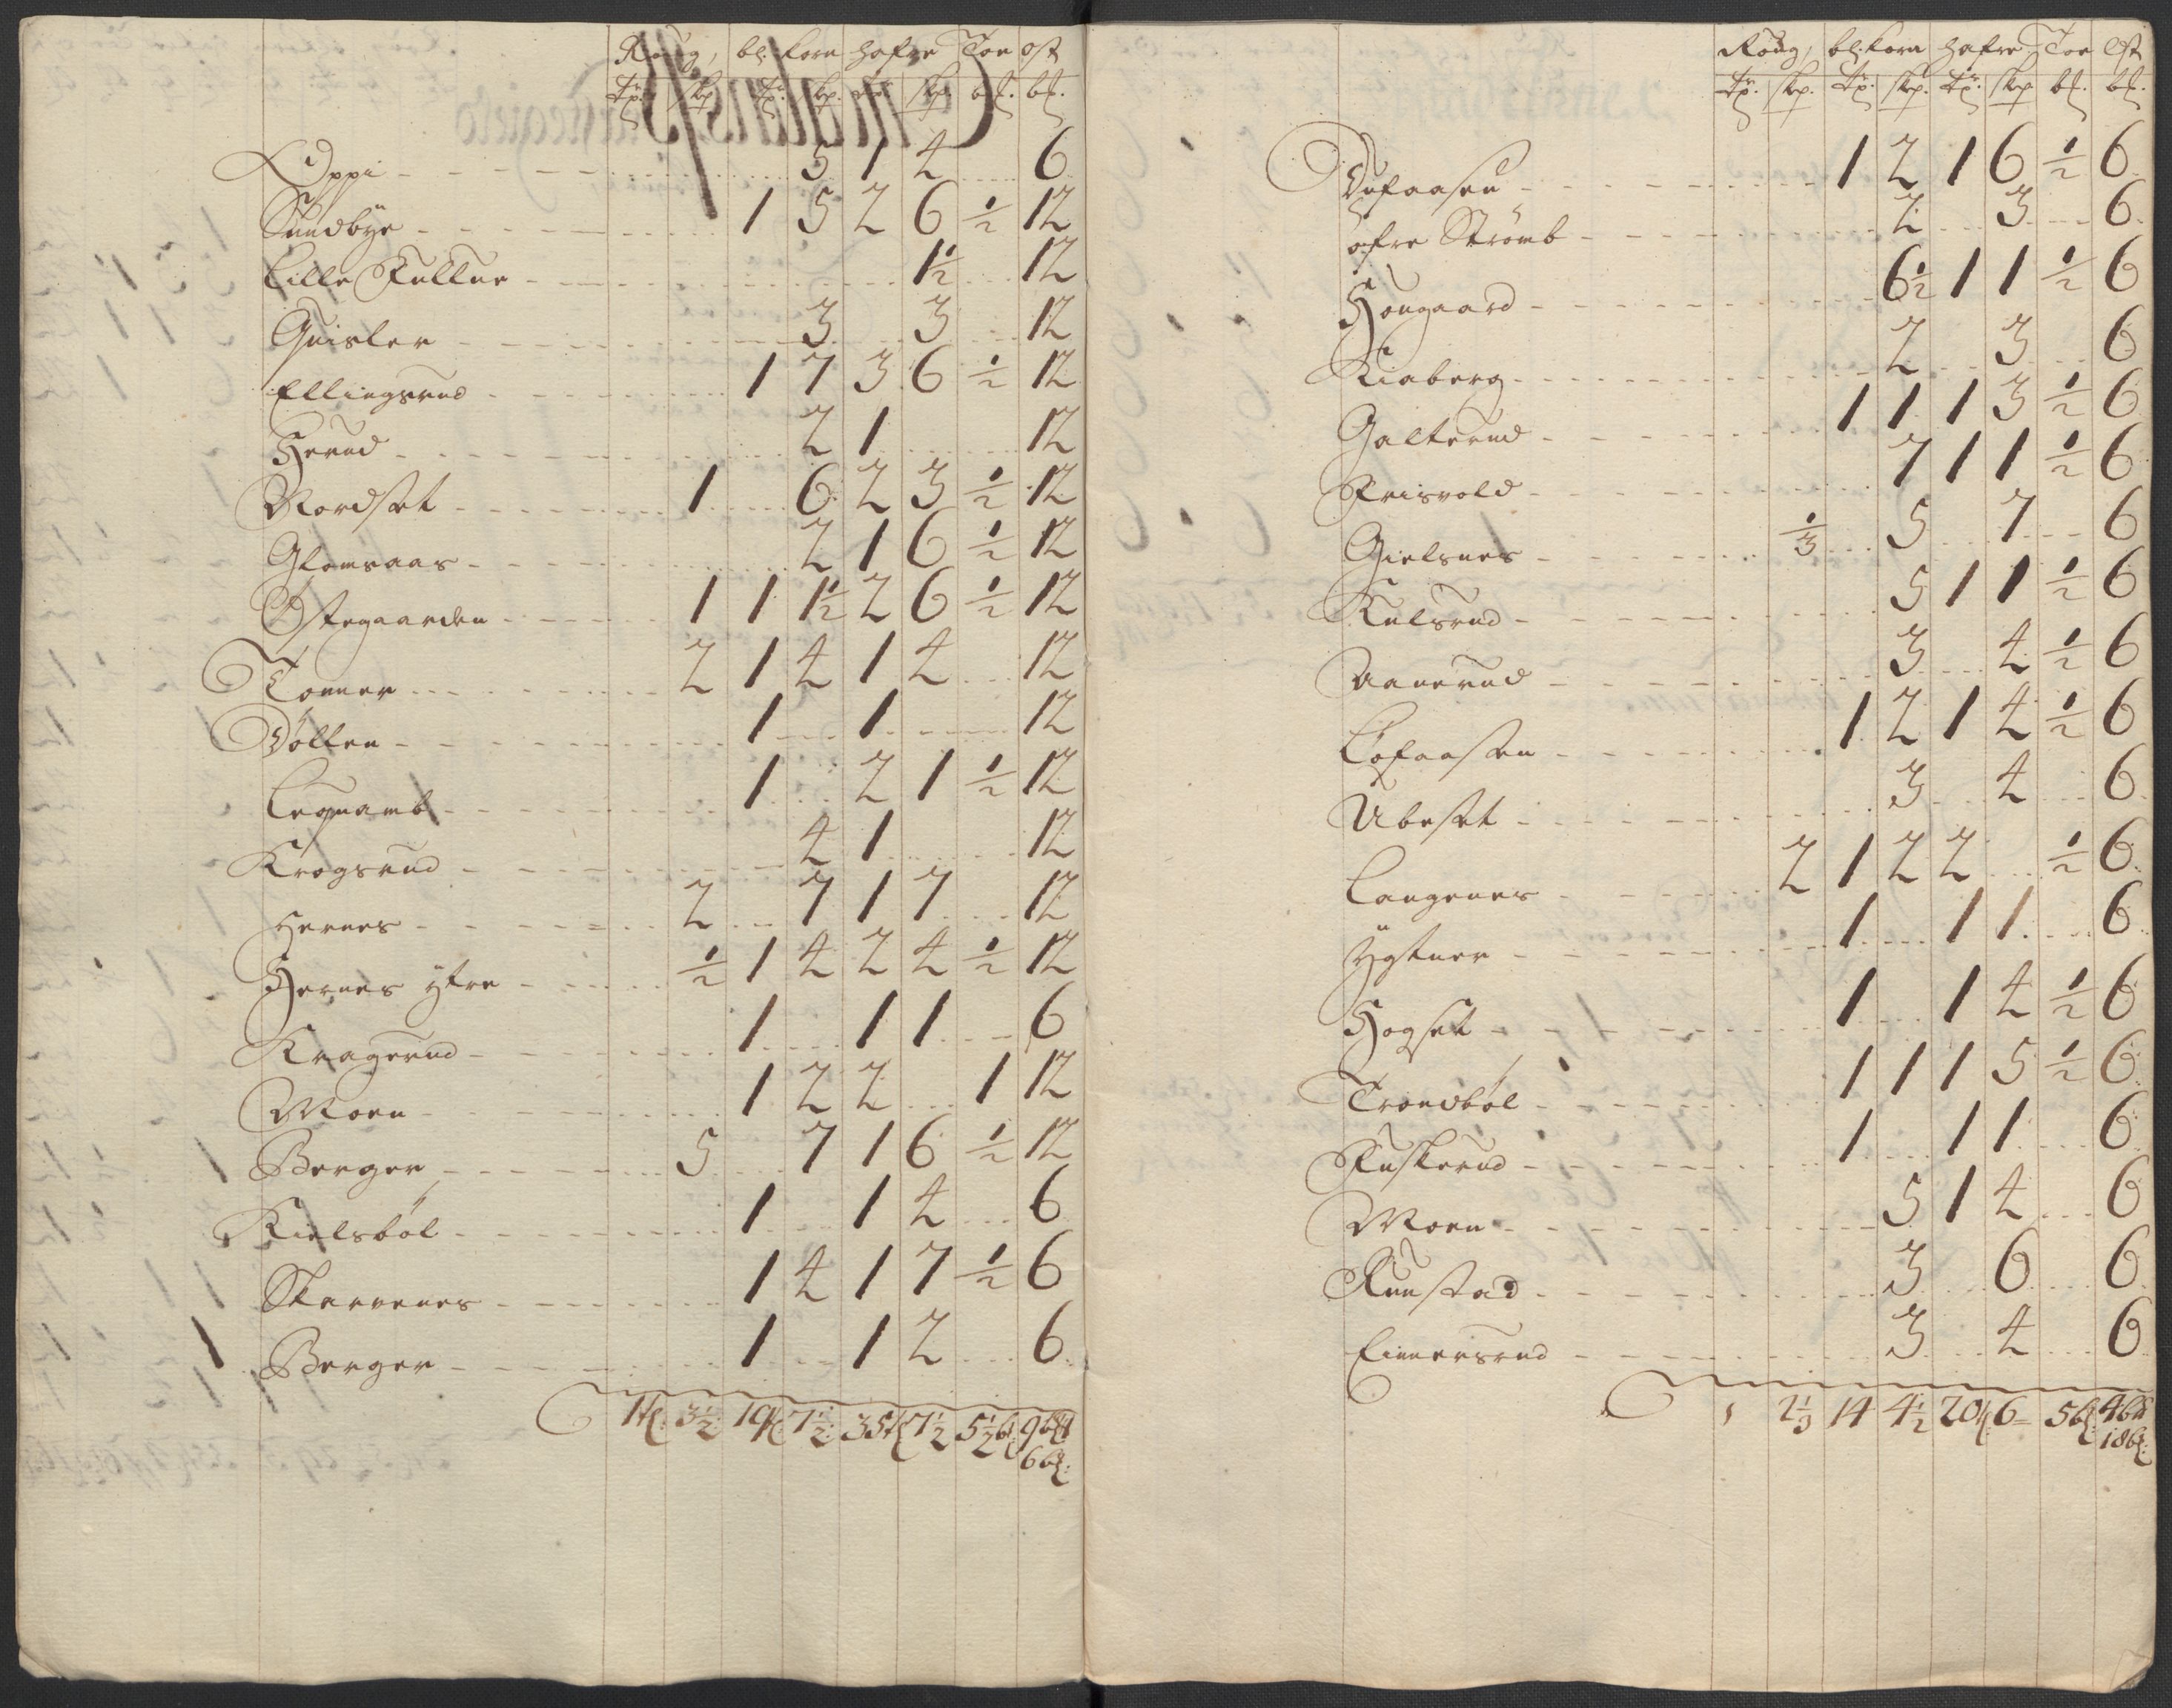 Roug, bl: Korn hafre Toe ost
Tr. skp. Tr. skp. Tr. skp bl. bl.
Oppi 5 1 4 6
Sundbye 1 5 2 6 ½ 12
Lille Fulltue 1½ 12
Quisler 3 3 12
Ellingsrud 1 7 3 6 ½ 12
Herud 2 1 12
Nordset 1 6 2 3 ½ 12
Glomsaas 2 1 6 ½ 12
Østegaarden 1 1 1½ 2 6 ½ 12
Tonner 2 1 4 1 4 12
Dølten 1 1 12
Legnamb 1 2 1 ½ 12
Krogsrud 4 1 12
Hernes 2 7 1 7 12
Hernes yfre ½ 1 4 2 4 ½ 12
Kragerud 1 1 1 6
Moen 1 2 2 1 12
Berger 5 7 1 6 ½ 12
Kielsbøl 1 1 4 6
Skarvenes 1 4 1 7 ½ 6
Berger 1 1 2 6
1 3½ 19 7½ 35 7½ 5½
6 bl:
Roug, bl: Korn hafre Toe Ost
Tr. skp. Tr. skp. Tr. skp bl. bl.
Dufaasen 1 2 1 6 ½ 6
øfre Strømb 2 3 6
Hougaard 6½ 1 1 ½ 6
Kiaberg 2 3 6
Galterud 1 1 1 3 ½ 6
Frisvold 7 1 1 ½ 6
Gielsnes ⅓ 5 7 6
Kulsrud 5 1 1 ½ 6
Aanerud 3 4 ½ 6
Løfaasen 1 2 1 4 ½ 6
Ubeset 3 4 6
Langenes 2 1 2 2 ½ 6
Ygtner 1 1 1 6
Hogset 1 1 4 ½ 6
Trondbøl 1 1 1 5 ½ 6
Fuskerud 1 1 1 6
Moen 5 1 4 6
Runstad 3 6 6
Einersrud 3 4 6
2⅓ 14 4½ 20 6 5 bl: 4
18 bl: